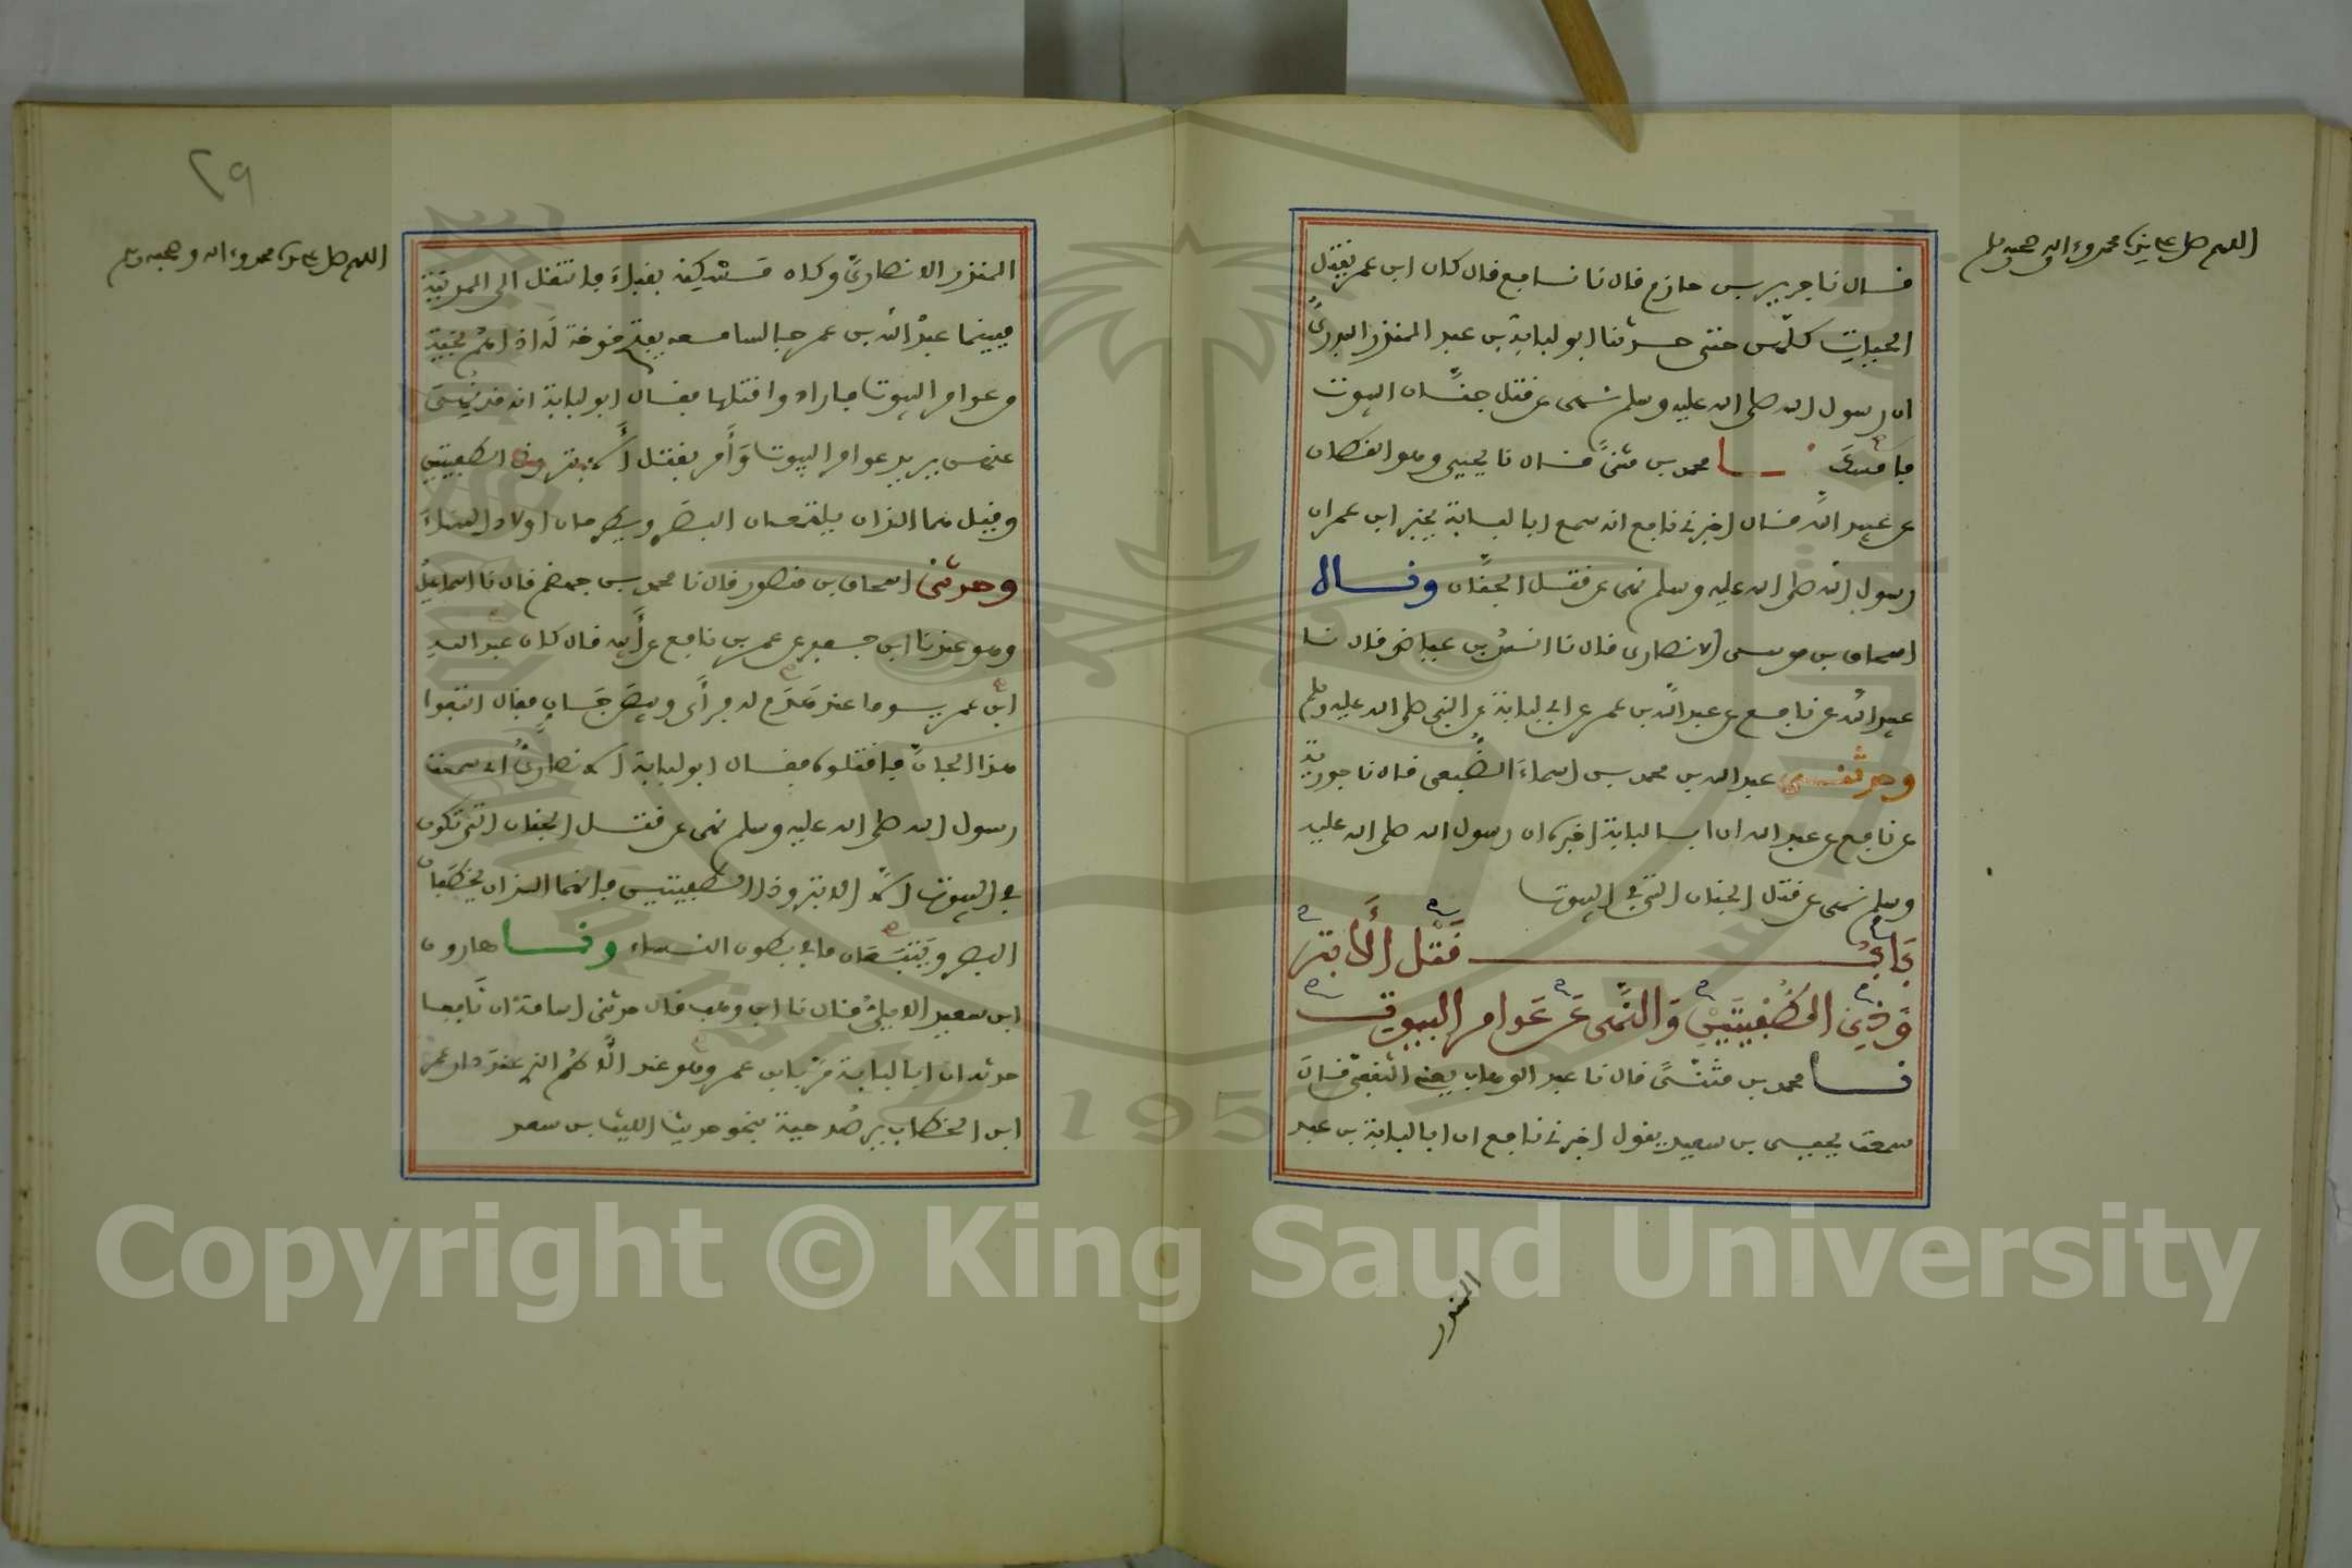 اللهم صل على نبينا محمد وءاله وصحبه وسلم
قال نا جرير بن حازم قال نا نافع قال كان ابن عمر يقتل
الحيات كلهن حتى حدثنا ابو لبابة بن عبد المنذر البدرىّ
ان رسول الله صلى الله عليه وسلم نهى عن قتل جنّان البيوت
فامسك نا محمد بن مثنىً قال نا يحيى وهو القطان
عن عبيد الله قال اخبرني نافع انه سمع ابا لبابة يخبر ابن عمر ان
رسول الله صلى الله عليه وسلم نهى عن قتل الجنّان وقال
اسحاق بن موسى الانصارى قال نا انس بن عياض قال نا
عبيد الله عن نافع عن عبد الله بن عمر عن ابي لبابة عن النبي صلى الله عليه وسلم
وحدثني عبد الله بن محمد بن اسماء الضبعى قال نا جويرية
عن نافع عن عبد الله ان ابا لبابة اخبره ان رسول الله صلى الله عليه
وسلم نهى عن قتل الجنان التي في البيوت
بَابُ قَتْل الأبتر
وَذِي الطُّفيتَيْنِ وَالنَّهى عَن عَوامر البيوت
نا محمد بن مثنىً قال نا عبد الوهاب يعني الثقفي قال
سمعت يحيى بن سعيد يقول اخبرني نافع ان ابا لبابة بن عبد
المنذر
٢٩
اللهم صل على نبينا محمد وءاله وصحبه وسلم
المنذر الانصاريّ وكان مسْكنه بقباء فانتقل الى المدينة
فبينما عبدُ الله بن عمر جالسا معه يفتح خوخة له اذا هُم بحية
من عوامر البيوت فاراد وا قتلها فقال ابو لبابة انه قد نُهِى
عنهن يريد عوامر البيوت وَأمر بقتل الأبتر وذى الطفيتين
وقيل هما اللذان يلتمعان البصر ويطرحان اولاد النساء
وحدثني اسحاق بن منصور قال نا محمد بن جهضم قال نا اسماعيل
وهو عندنا ابن جعفر عن عمر بن نافع عن أبيه قال كان عبد الله
ابن عمر يوما عند هَدْم له فرأى وبيص جَان فقال اتبعوا
هذا الجانّ فاقتلوه فقال ابو لبابة الانصارىُّ اني سمعت
رسول الله صلى الله عليه وسلم نهى عن قتل الجنان التي تكون
في البيوت الا الابتر وذا الطفيتين فانهما اللذان يخطفان
البصر ويتتبعان ما في بطون النساء ونا هارون
ابن سعيد الايليُّ قال نا ابن وهب قال حدثني اسامة ان نافعا
حدثه ان ابا لبابة مرّ بابن عمر وهو عند الأطم الذي عند دار عمر
ابن الخطاب يرصُد حية بنحو حديث الليث بن سعد
Copyright © King Saud University
1957